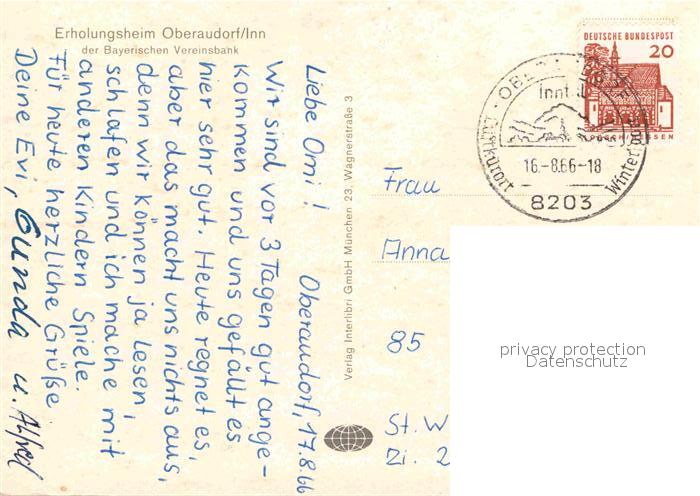 Erholungsheim Oberaudorf/Inn
der Bayerischen Vereinsbank
Oberaudorf, 17.8.66
Liebe Omi!
Wir sind vor 3 Tagen gut ange-
kommen und uns gefällt es
hier sehr gut. Heute regnet es,
aber das macht uns nichts aus,
denn wir können ja lesen,
schlafen und ich mache mit
anderen Kindern Spiele.
Für heute herzliche Grüße
Deine Evi, Gunda u. Alfred
Verlag Interlibri GmbH München 23, Wagnerstraße 3
DEUTSCHE BUNDESPOST
20
Luftkurort
Wintersport
16.-8.66-18
8203
Frau
Anna
85
St. W
Zi. 2
privacy protection
Datenschutz